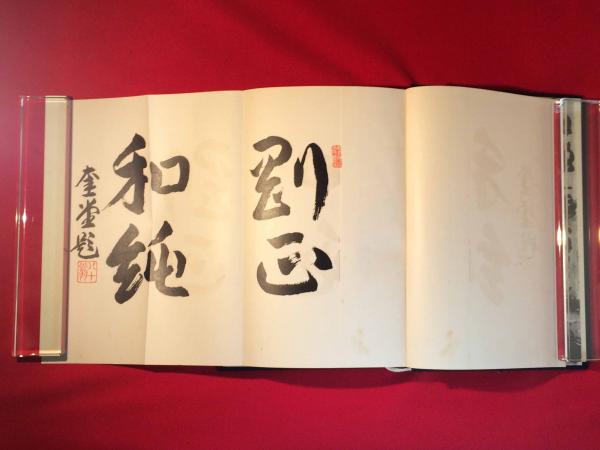 剛正
和純
奎堂題